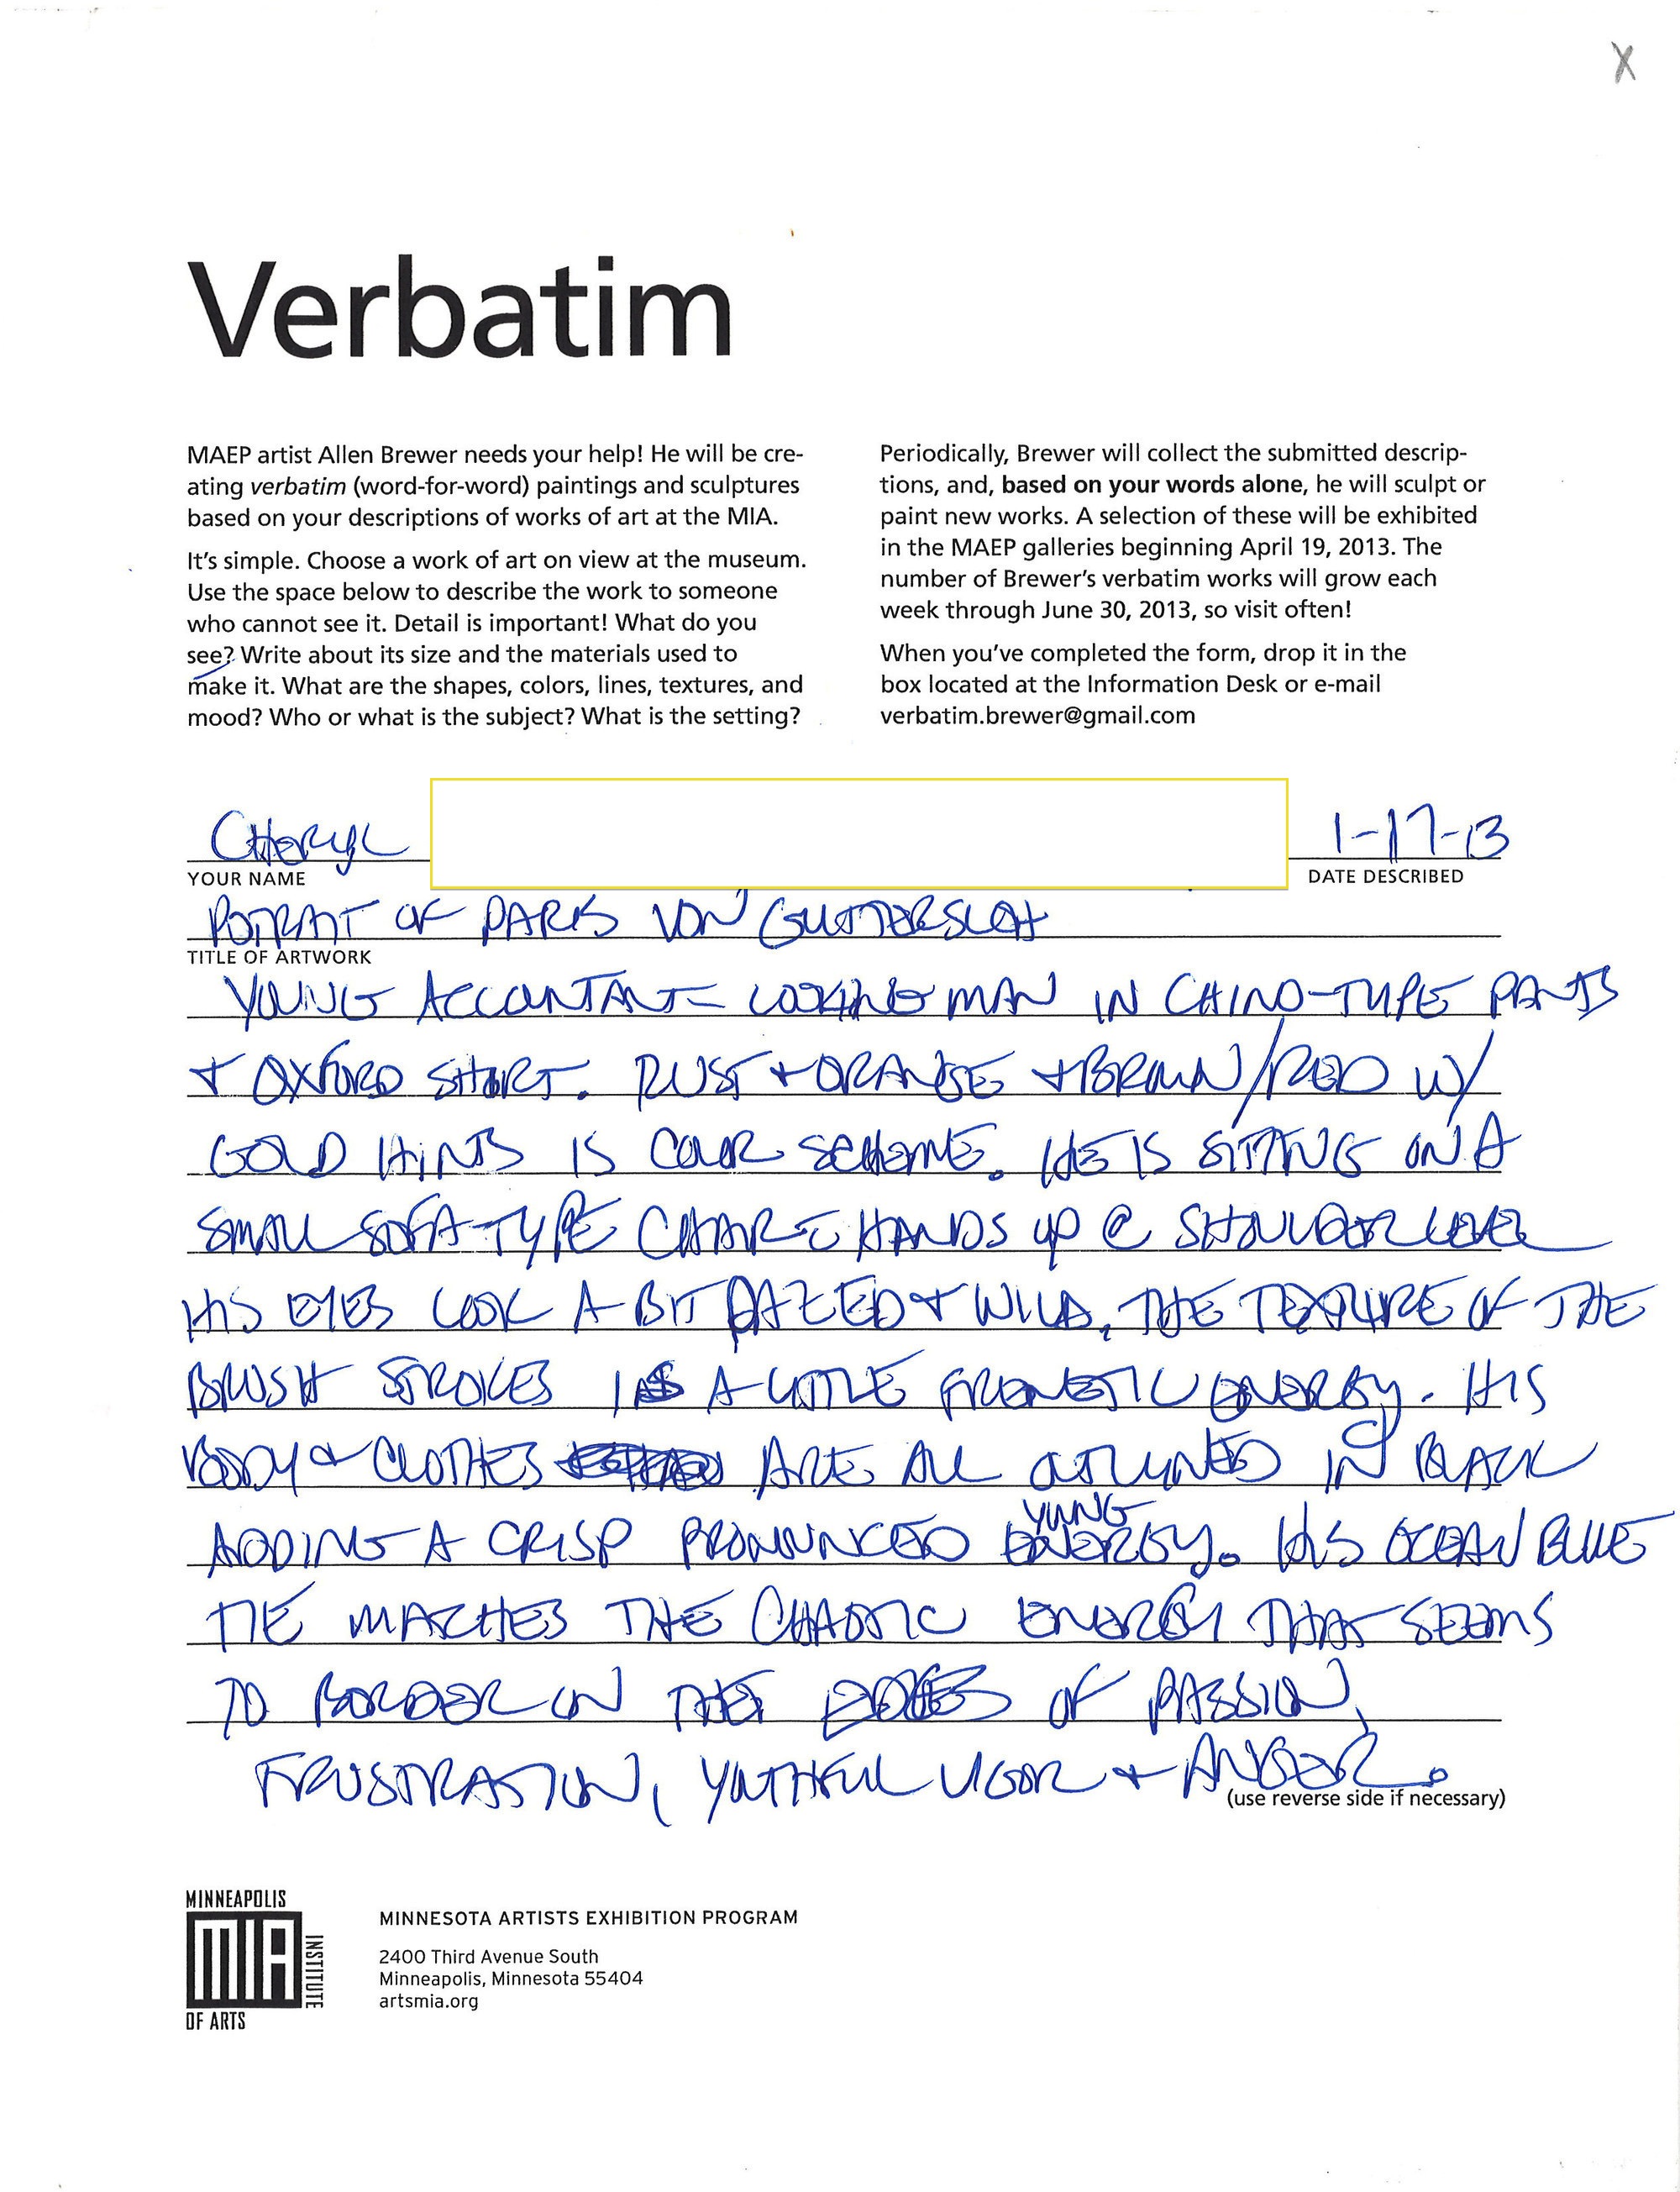 X
Verbatim
MAEP artist Allen Brewer needs your help! He will be cre-
ating verbatim (word-for-word) paintings and sculptures
based on your descriptions of works of art at the MIA.
It's simple. Choose a work of art on view at the museum.
Use the space below to describe the work to someone
who cannot see it. Detail is important! What do you
see? Write about its size and the materials used to
make it. What are the shapes, colors, lines, textures, and
mood? Who or what is the subject? What is the setting?
Periodically, Brewer will collect the submitted descrip-
tions, and, based on your words alone, he will sculpt or
paint new works. A selection of these will be exhibited
in the MAEP galleries beginning April 19, 2013. The
number of Brewer's verbatim works will grow each
week through June 30, 2013, so visit often!
When you've completed the form, drop it in the
box located at the Information Desk or e-mail
verbatim.brewer@gmail.com
CHERYL 1-17-13
YOUR NAME DATE DESCRIBED
PORTRAIT OF PARIS VON GUTTERSLOH
TITLE OF ARTWORK
YOUNG ACCOUNTANT-LOOKING MAN IN CHINO-TYPE PANTS
+ OXFORD SHIRT. RUST + ORANGE + BROWN/RED W/
GOLD HINTS IS COLOR SCHEME. HE IS SITTING ON A
SMALL SOFA-TYPE CHAIR HANDS UP @ SHOULDER LEVEL
HIS EYES LOOK A BIT DAZED + WILD. THE TEXTURE OF THE
BRUSH STROKES IS A LITTLE FRENETIC ENERGY. HIS
BODY + CLOTHES ARE ALL OUTLINED IN BLACK
ADDING A CRISP PRONOUNCED YOUNG ENERGY. HIS OCEAN BLUE
TIE MATCHES THE CHAOTIC ENERGY THAT SEEMS
TO BORDER ON THE EDGES OF PASSION,
FRUSTRATION, YOUTHFUL VIGOR + ANGER.
(use reverse side if necessary)
MINNEAPOLIS
MIA
INSTITUTE
OF ARTS
MINNESOTA ARTISTS EXHIBITION PROGRAM
2400 Third Avenue South
Minneapolis, Minnesota 55404
artsmia.org